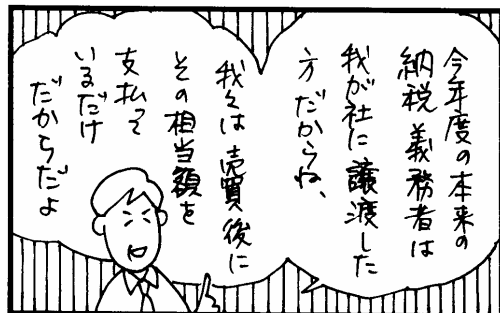 今年度の本来の
納税義務者は
我が社に譲渡した
方だからね、
我々は売買後に
その相当額を
支払って
いるだけ
だからだよ